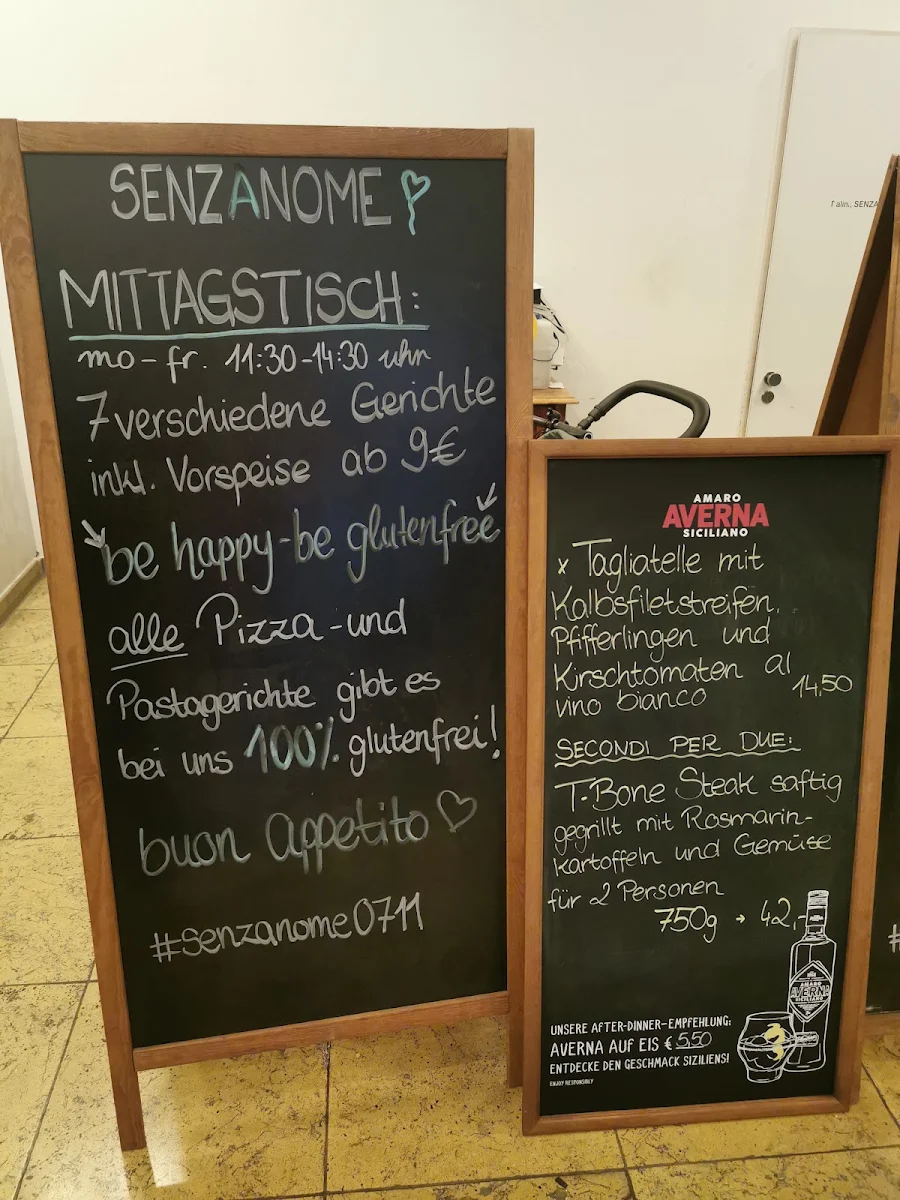 SENZANOME
MITTAGSTISCH:
mo - fr. 11:30 - 14:30 uhr
7 verschiedene Gerichte
inkl. Vorspeise ab 9€
be happy - be glutenfree
alle Pizza - und
Pastagerichte gibt es
bei uns 100% glutenfrei!
buon appetito
#senzanome0711
AMARO
AVERNA
SICILIANO
x Tagliatelle mit
Kalbsfiletstreifen,
Pfifferlingen und
Kirschtomaten al
vino bianco 14,50
SECONDI PER DUE:
T-Bone Steak saftig
gegrillt mit Rosmarin-
kartoffeln und Gemüse
für 2 Personen
750g → 42,-
AMARO
AVERNA
SICILIANO
UNSERE AFTER-DINNER-EMPFEHLUNG:
AVERNA AUF EIS € 5,50
ENTDECKE DEN GESCHMACK SIZILIENS!
ENJOY RESPONSIBLY
SENZA
#